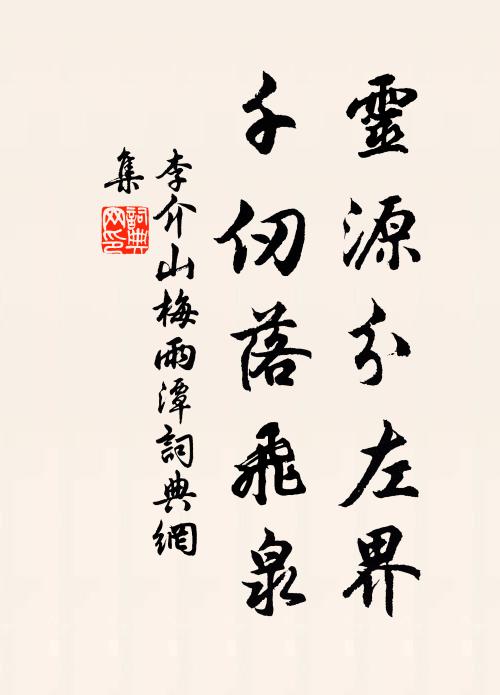 靈源分左界
千仞落飛泉
李介山梅雨潭詞典網
集
詞典網印